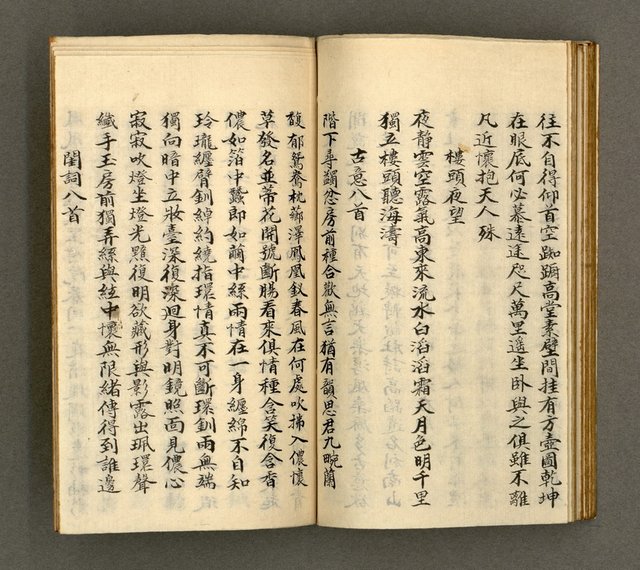 往不自得仰首空踟蹰高堂素壁間挂有方壺圖乾坤
在眼底何必慕遠途咫尺萬里遥坐卧與之俱雖不離
凡近懷抱天人殊
樓頭夜望
夜靜雲空露氣高東來流水白滔滔霜天月色明千里
獨立樓頭聽海濤
古意八首
階下尋蠲忿房前種合歡無言猶有韻思君九畹蘭
馥郁鴛鴦枕薌澤鳳凰釵春風在何處吹拂入儂懷
草發名並蒂花開號斷腸看來俱情種含笑復含香
儂如箔中蠶郎如繭中絲兩情在一身纏綿不自知
玲瓏纏臂釧綽約繞指環情真不可斷環釧兩無端
獨向暗中立妝臺深復深迴身對明鏡照面見儂心
寂寂吹燈坐燈光顯復明欲藏形與影露出珮環聲
纖手玉房前獨弄絲與絃中懷無限緒傳得到誰邊
閨詞八首